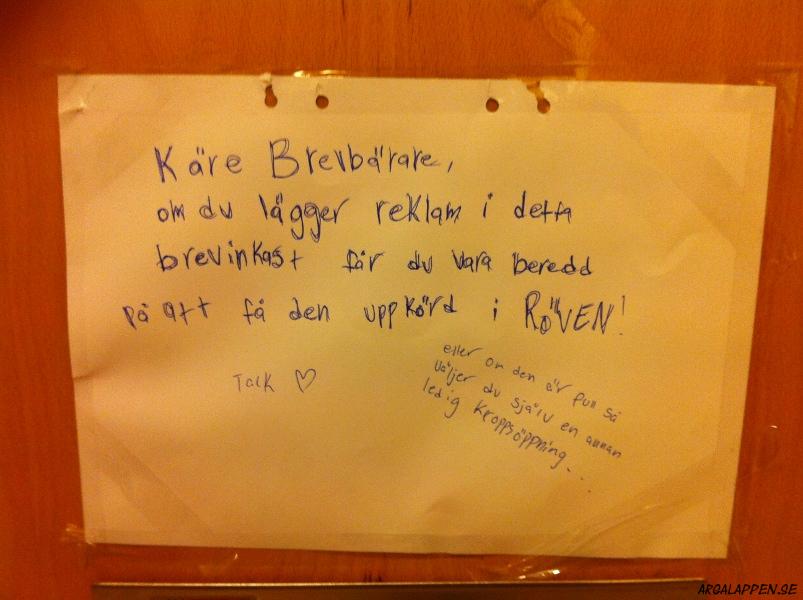 Käre Brevbärare,
om du lägger reklam i detta
brevinkast får du vara beredd
på att få den uppkörd i RöVEN!
Tack ♡
eller om den är full så
väljer du själv en annan
ledig kroppsöppning...
ARGALAPPEN.SE